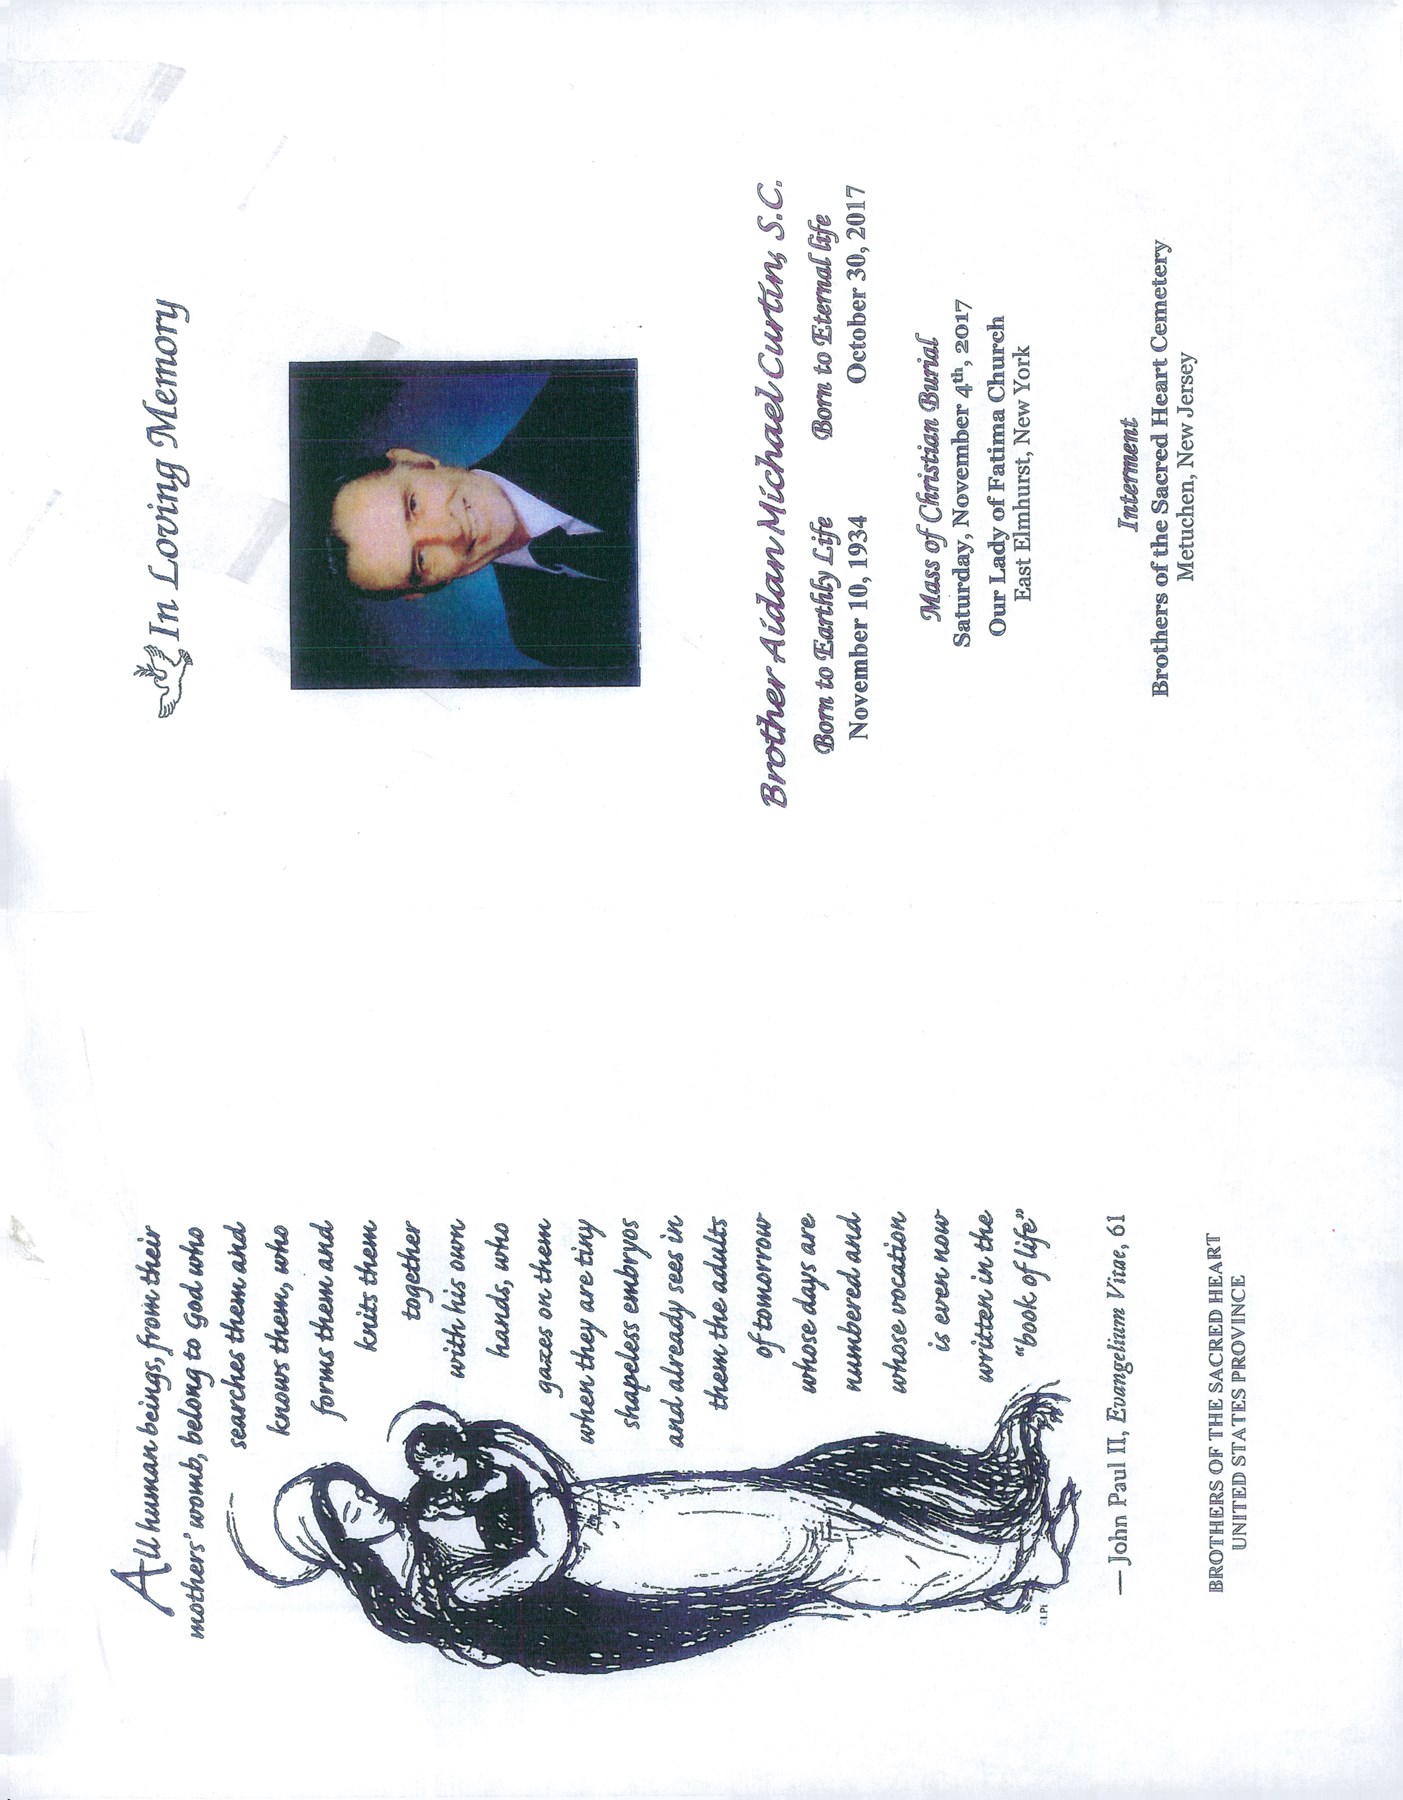 All human beings, from their
mothers' womb, belong to God who
searches them and
knows them, who
forms them and
knits them
together
with his own
hands, who
gazes on them
when they are tiny
shapeless embryos
and already sees in
them the adults
of tomorrow
whose days are
numbered and
whose vocation
is even now
written in the
"book of life"
— John Paul II, Evangelium Vitae, 61
BROTHERS OF THE SACRED HEART
UNITED STATES PROVINCE
In Loving Memory
Brother Aidan Michael Curtin, S.C.
Born to Earthly Life Born to Eternal life
November 10, 1934 October 30, 2017
Mass of Christian Burial
Saturday, November 4th, 2017
Our Lady of Fatima Church
East Elmhurst, New York
Interment
Brothers of the Sacred Heart Cemetery
Metuchen, New Jersey